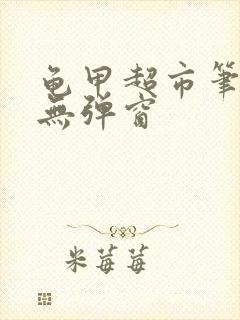 龟甲超市筆
無弹窗
米莓莓